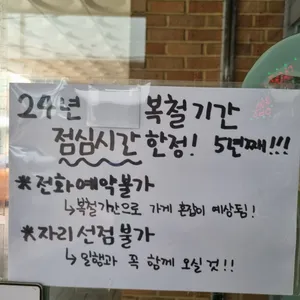 24년 복철기간
점심시간 한정! 5년째!!!
※전화예약불가
↳복철기간으로 가게 혼잡이 예상됨!
※자리선점불가
↳일행과 꼭 함께 오실 것!!